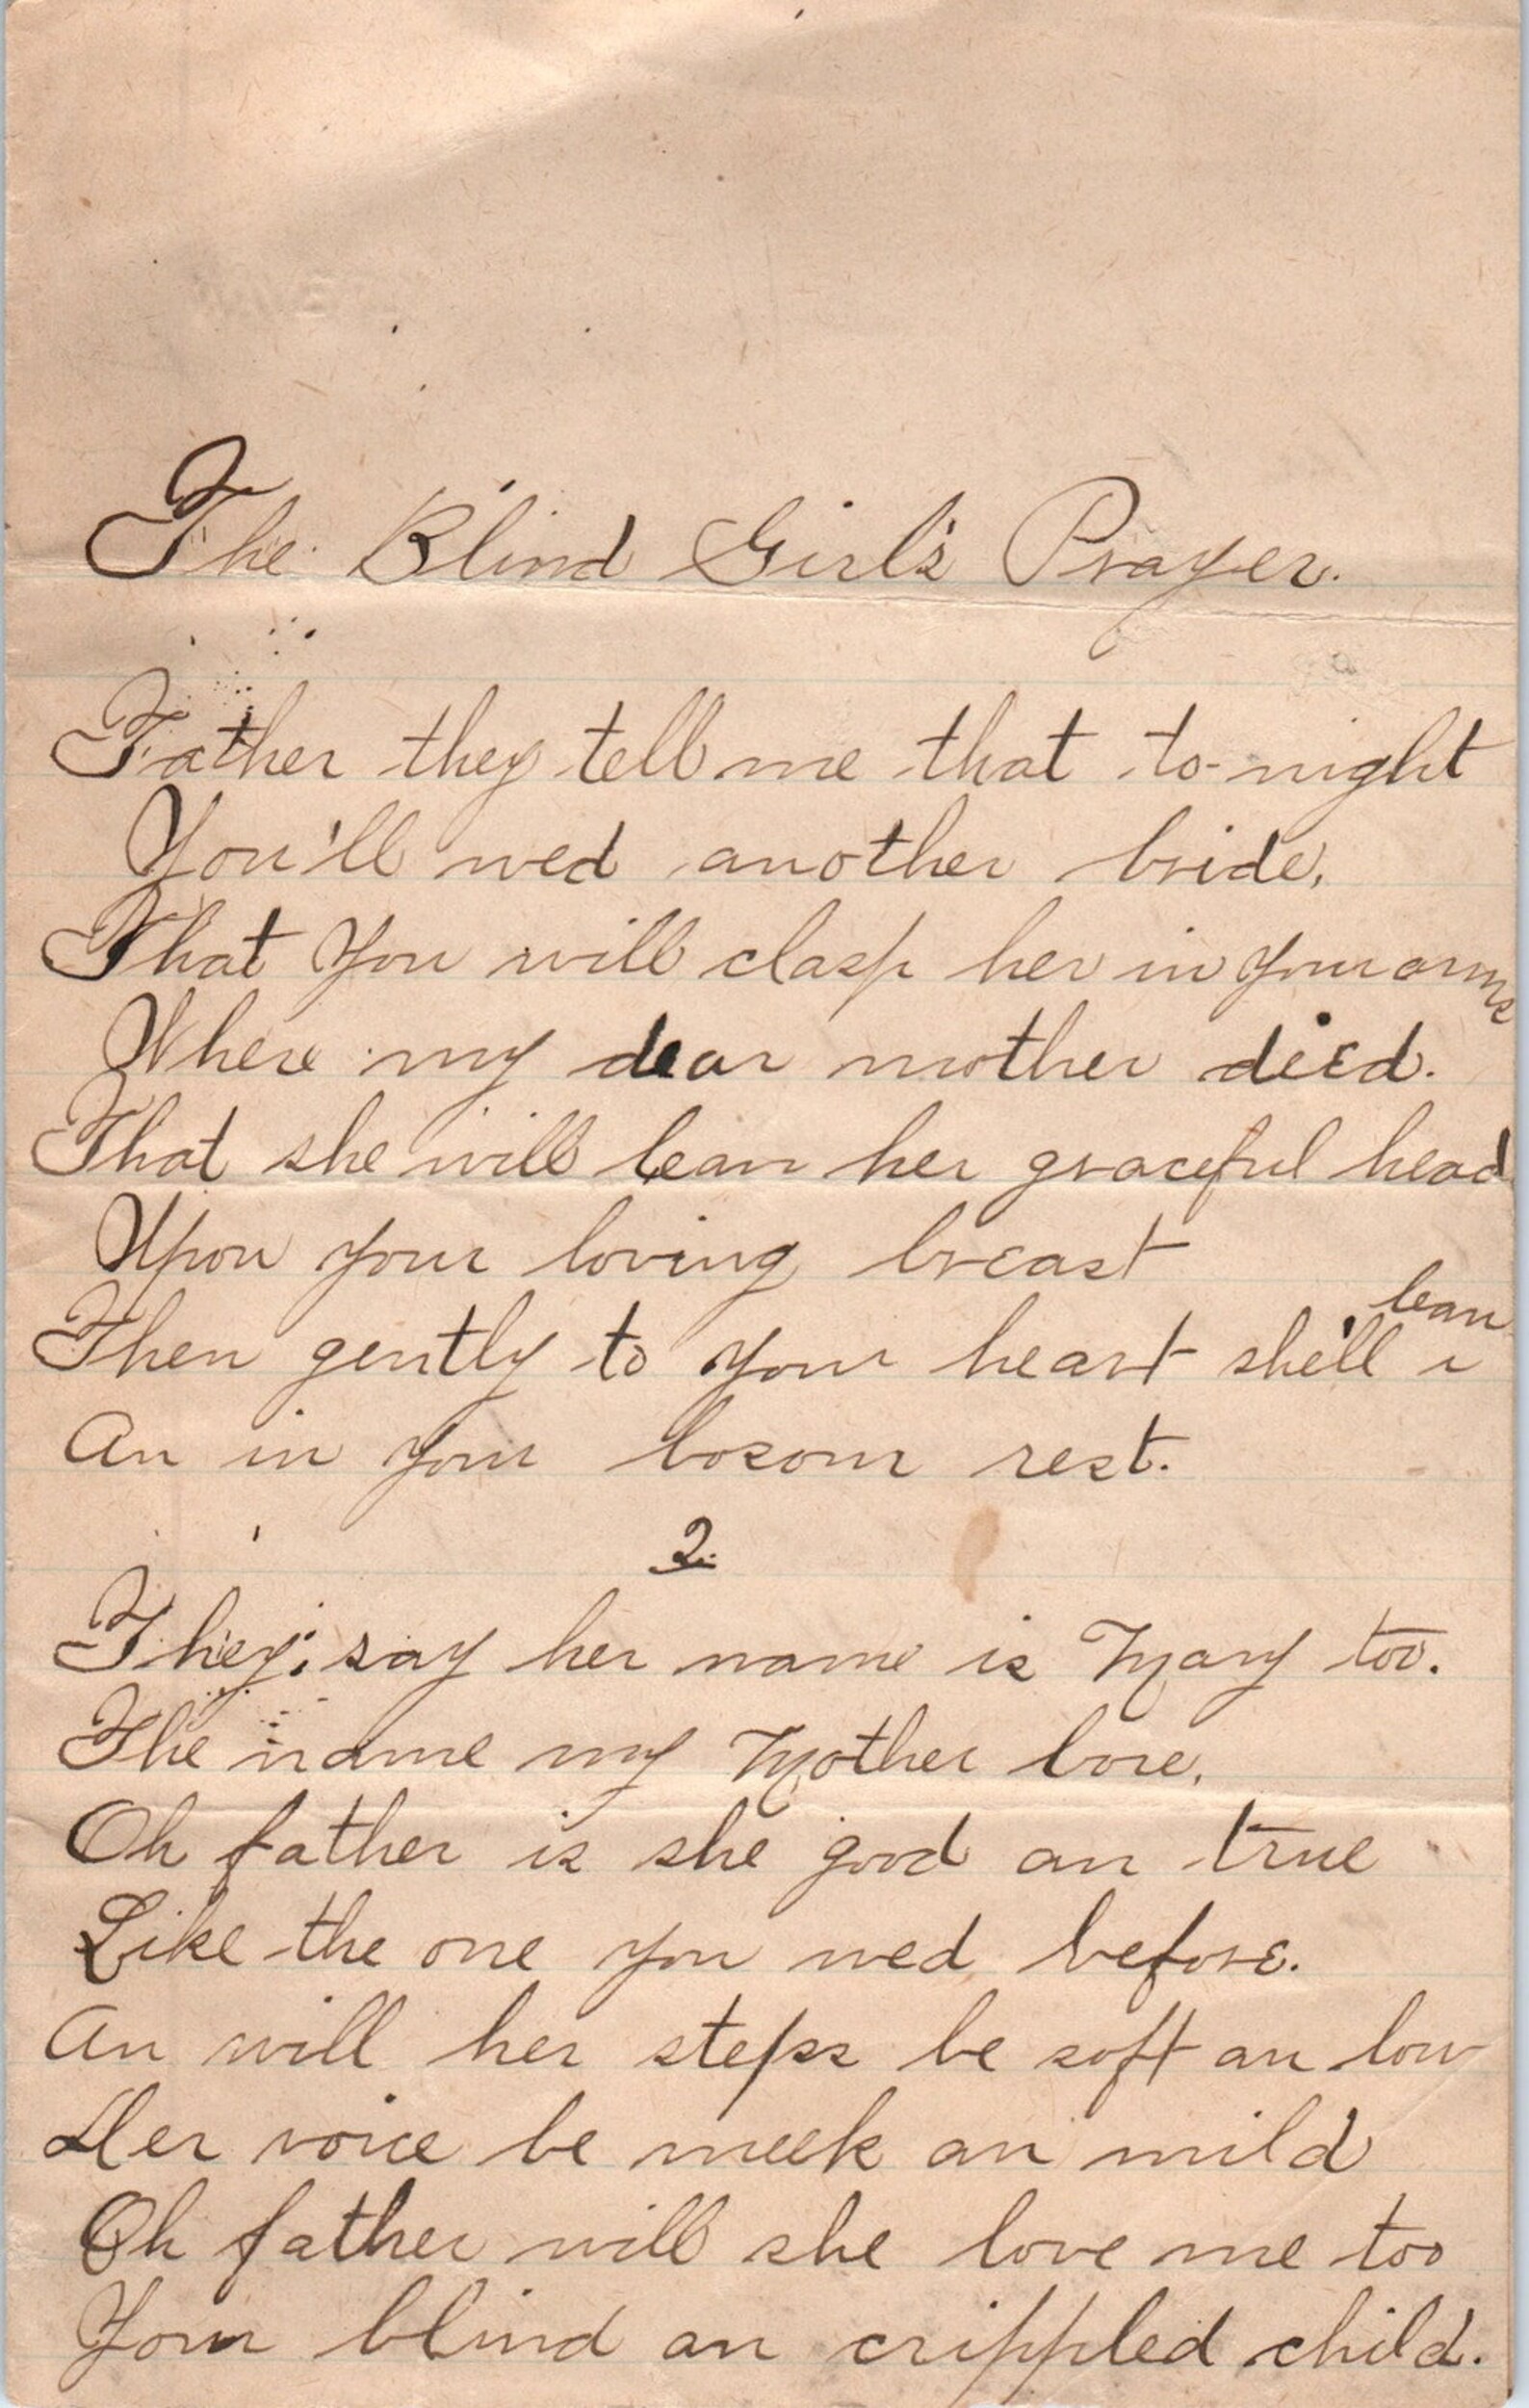 The Blind Girl's Prayer.
Father they tell me that to-night
You'll wed another bride,
That you will clasp her in your arms
Where my dear mother died.
That she will lean her graceful head
Upon your loving breast
Then gently to your heart she'll lean
An in your bosom rest.
2.
They say her name is Mary too.
The name my Mother bore,
Oh father is she good an true
Like the one you wed before.
An will her steps be soft an low
Her voice be meek an mild
Oh father will she love me too
Your blind an crippled child.